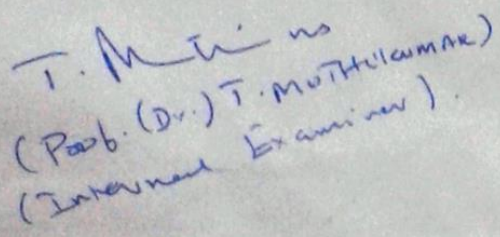 T. Muth
(Prof. (Dr.) T. MUTHUKUMAR)
(Internal Examiner).